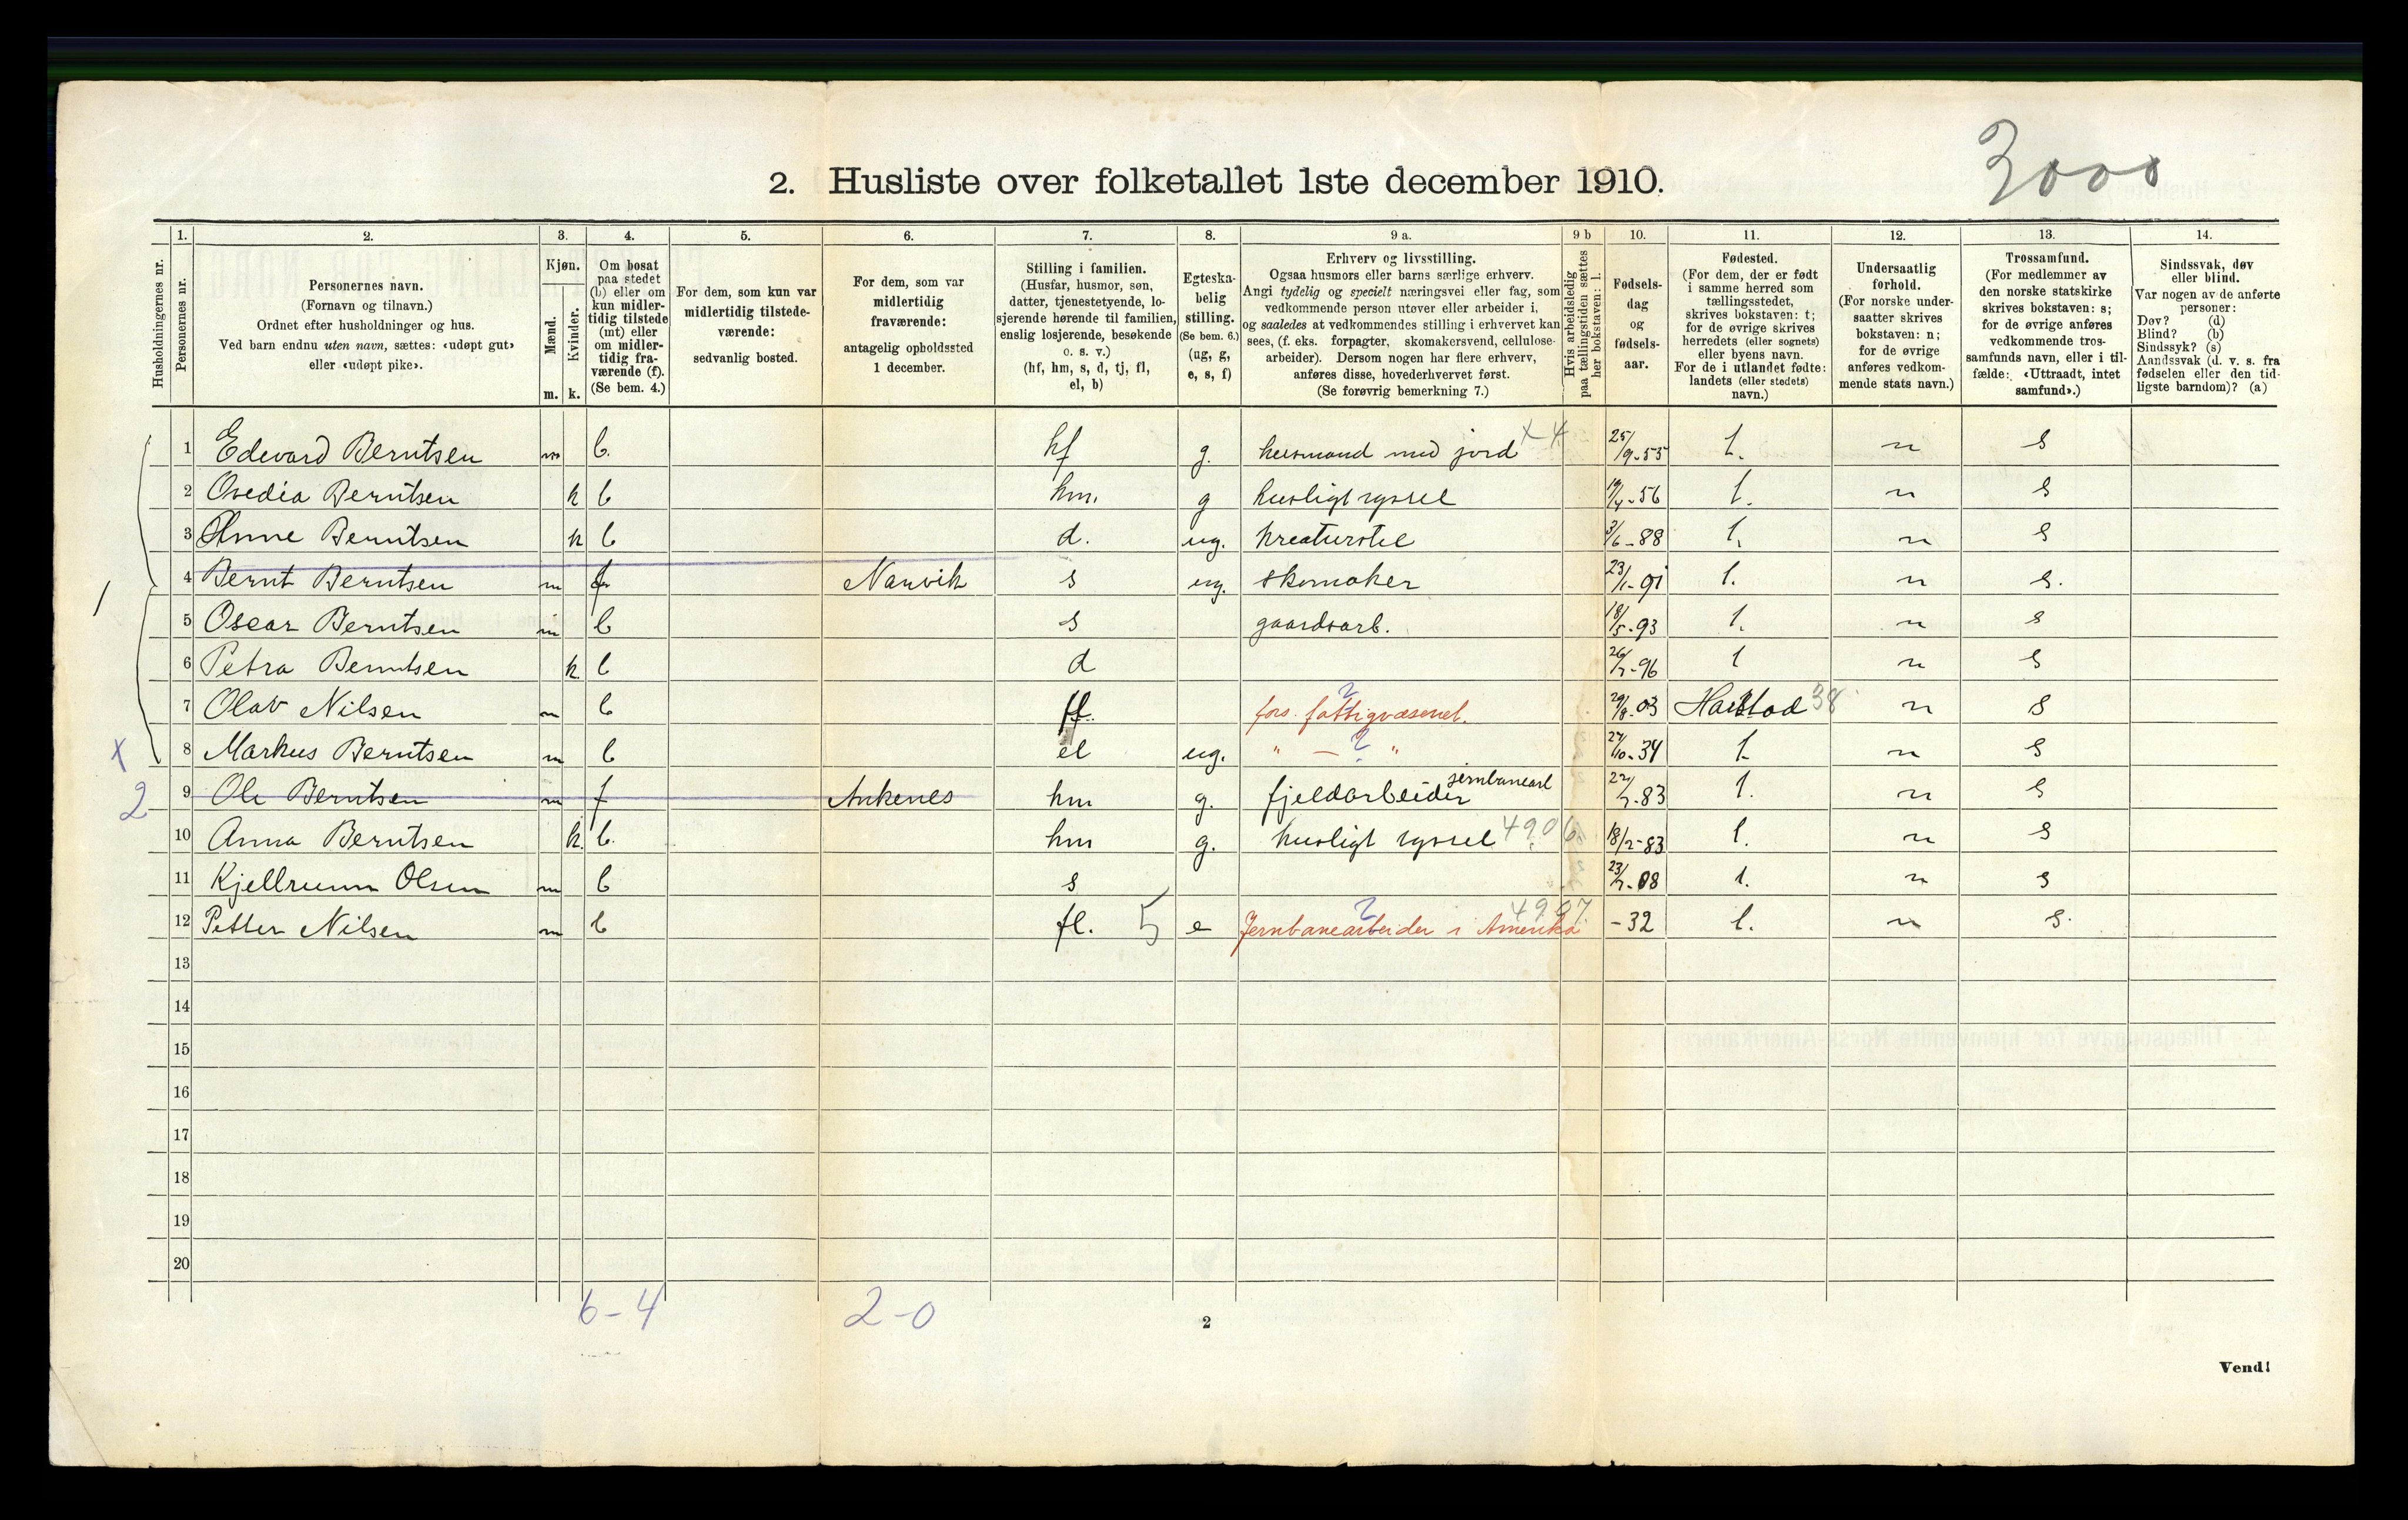 3000
2. Husliste over folketallet 1ste december 1910.
Husholdningernes nr.
1. Personernes nr.
2. Personernes navn.
(Fornavn og tilnavn.)
Ordnet efter husholdninger og hus.
Ved barn endnu uten navn, sættes: «udøpt gut»
eller «udøpt pike».
3. Kjøn.
Mænd. m.
Kvinder. k.
4. Om bosat
paa stedet
(b) eller om
kun midler-
tidig tilstede
(mt) eller
om midler-
tidig fra-
værende (f).
(Se bem. 4.)
5. For dem, som kun var
midlertidig tilstede-
værende:
sedvanlig bosted.
6. For dem, som var
midlertidig
fraværende:
antagelig opholdssted
1 december.
7. Stilling i familien.
(Husfar, husmor, søn,
datter, tjenestetyende, lo-
sjerende hørende til familien,
enslig losjerende, besøkende
o. s. v.)
(hf, hm, s, d, tj, fl,
el, b)
8. Egteska-
belig
stilling.
(Se bem. 6.)
(ug, g,
e, s, f)
9 a. Erhverv og livsstilling.
Ogsaa husmors eller barns særlige erhverv.
Angi tydelig og specielt næringsvei eller fag, som
vedkommende person utøver eller arbeider i,
og saaledes at vedkommendes stilling i erhvervet kan
sees, (f. eks. forpagter, skomakersvend, cellulose-
arbeider). Dersom nogen har flere erhverv,
anføres disse, hovederhvervet først.
(Se forøvrig bemerkning 7.)
9 b Hvis arbeidsledig
paa tællingstiden sættes
her bokstaven: l.
10. Fødsels-
dag
og
fødsels-
aar.
11. Fødested.
(For dem, der er født
i samme herred som
tællingsstedet,
skrives bokstaven: t;
for de øvrige skrives
herredets (eller sognets)
eller byens navn.
For de i utlandet fødte:
landets (eller stedets)
navn.)
12. Undersaatlig
forhold.
(For norske under-
saatter skrives
bokstaven: n;
for de øvrige
anføres vedkom-
mende stats navn.)
13. Trossamfund.
(For medlemmer av
den norske statskirke
skrives bokstaven: s;
for de øvrige anføres
vedkommende tros-
samfunds navn, eller i til-
fælde: «Uttraadt, intet
samfund».)
14. Sindssvak, døv
eller blind.
Var nogen av de anførte
personer:
Døv? (d)
Blind? (b)
Sindssyk? (s)
Aandssvak (d. v. s. fra
fødselen eller den tid-
ligste barndom)? (a)
1 Edevard Berntsen m b. hf g. husmand med jord x 4 25/9-55 t. n s
2 Ovedia Berntsen k b hm. g husligt syssel 19/4-56 t. n s
3 Anne Berntsen k b d. ug. kreaturstel 3/6-88 t. n s
1 4 Bernt Berntsen m f Narvik s ug. skomaker 23/1-91 t. n s.
5 Oscar Berntsen m b s gaardsarb. 18/5-93 t. n s
6 Petra Berntsen k. b d 26/7-96 t n s
7 Olav Nilsen m b fl. fors. fattigvæsenet. ? 29/8-03 Harstad 38 n s
x 8 Markus Berntsen m b el ug. " — " ? 27/10-34 t n s
2 9 Ole Berntsen m f Ankenes hm g. fjeldarbeider jernbanearb 22/7-83 t. n s
10 Anna Berntsen k. b. hm g. husligt syssel 4906 18/2-83 t. n s
11 Kjellrunn Olsen m b s 23/7-08 t. n s
12 Petter Nilsen m b fl. 5 e Jernbanearbeider i Amerika ? 4907. -32 t. n s.
13
14
15
16
17
18
19
20
6-4 2-0
2
Vend!